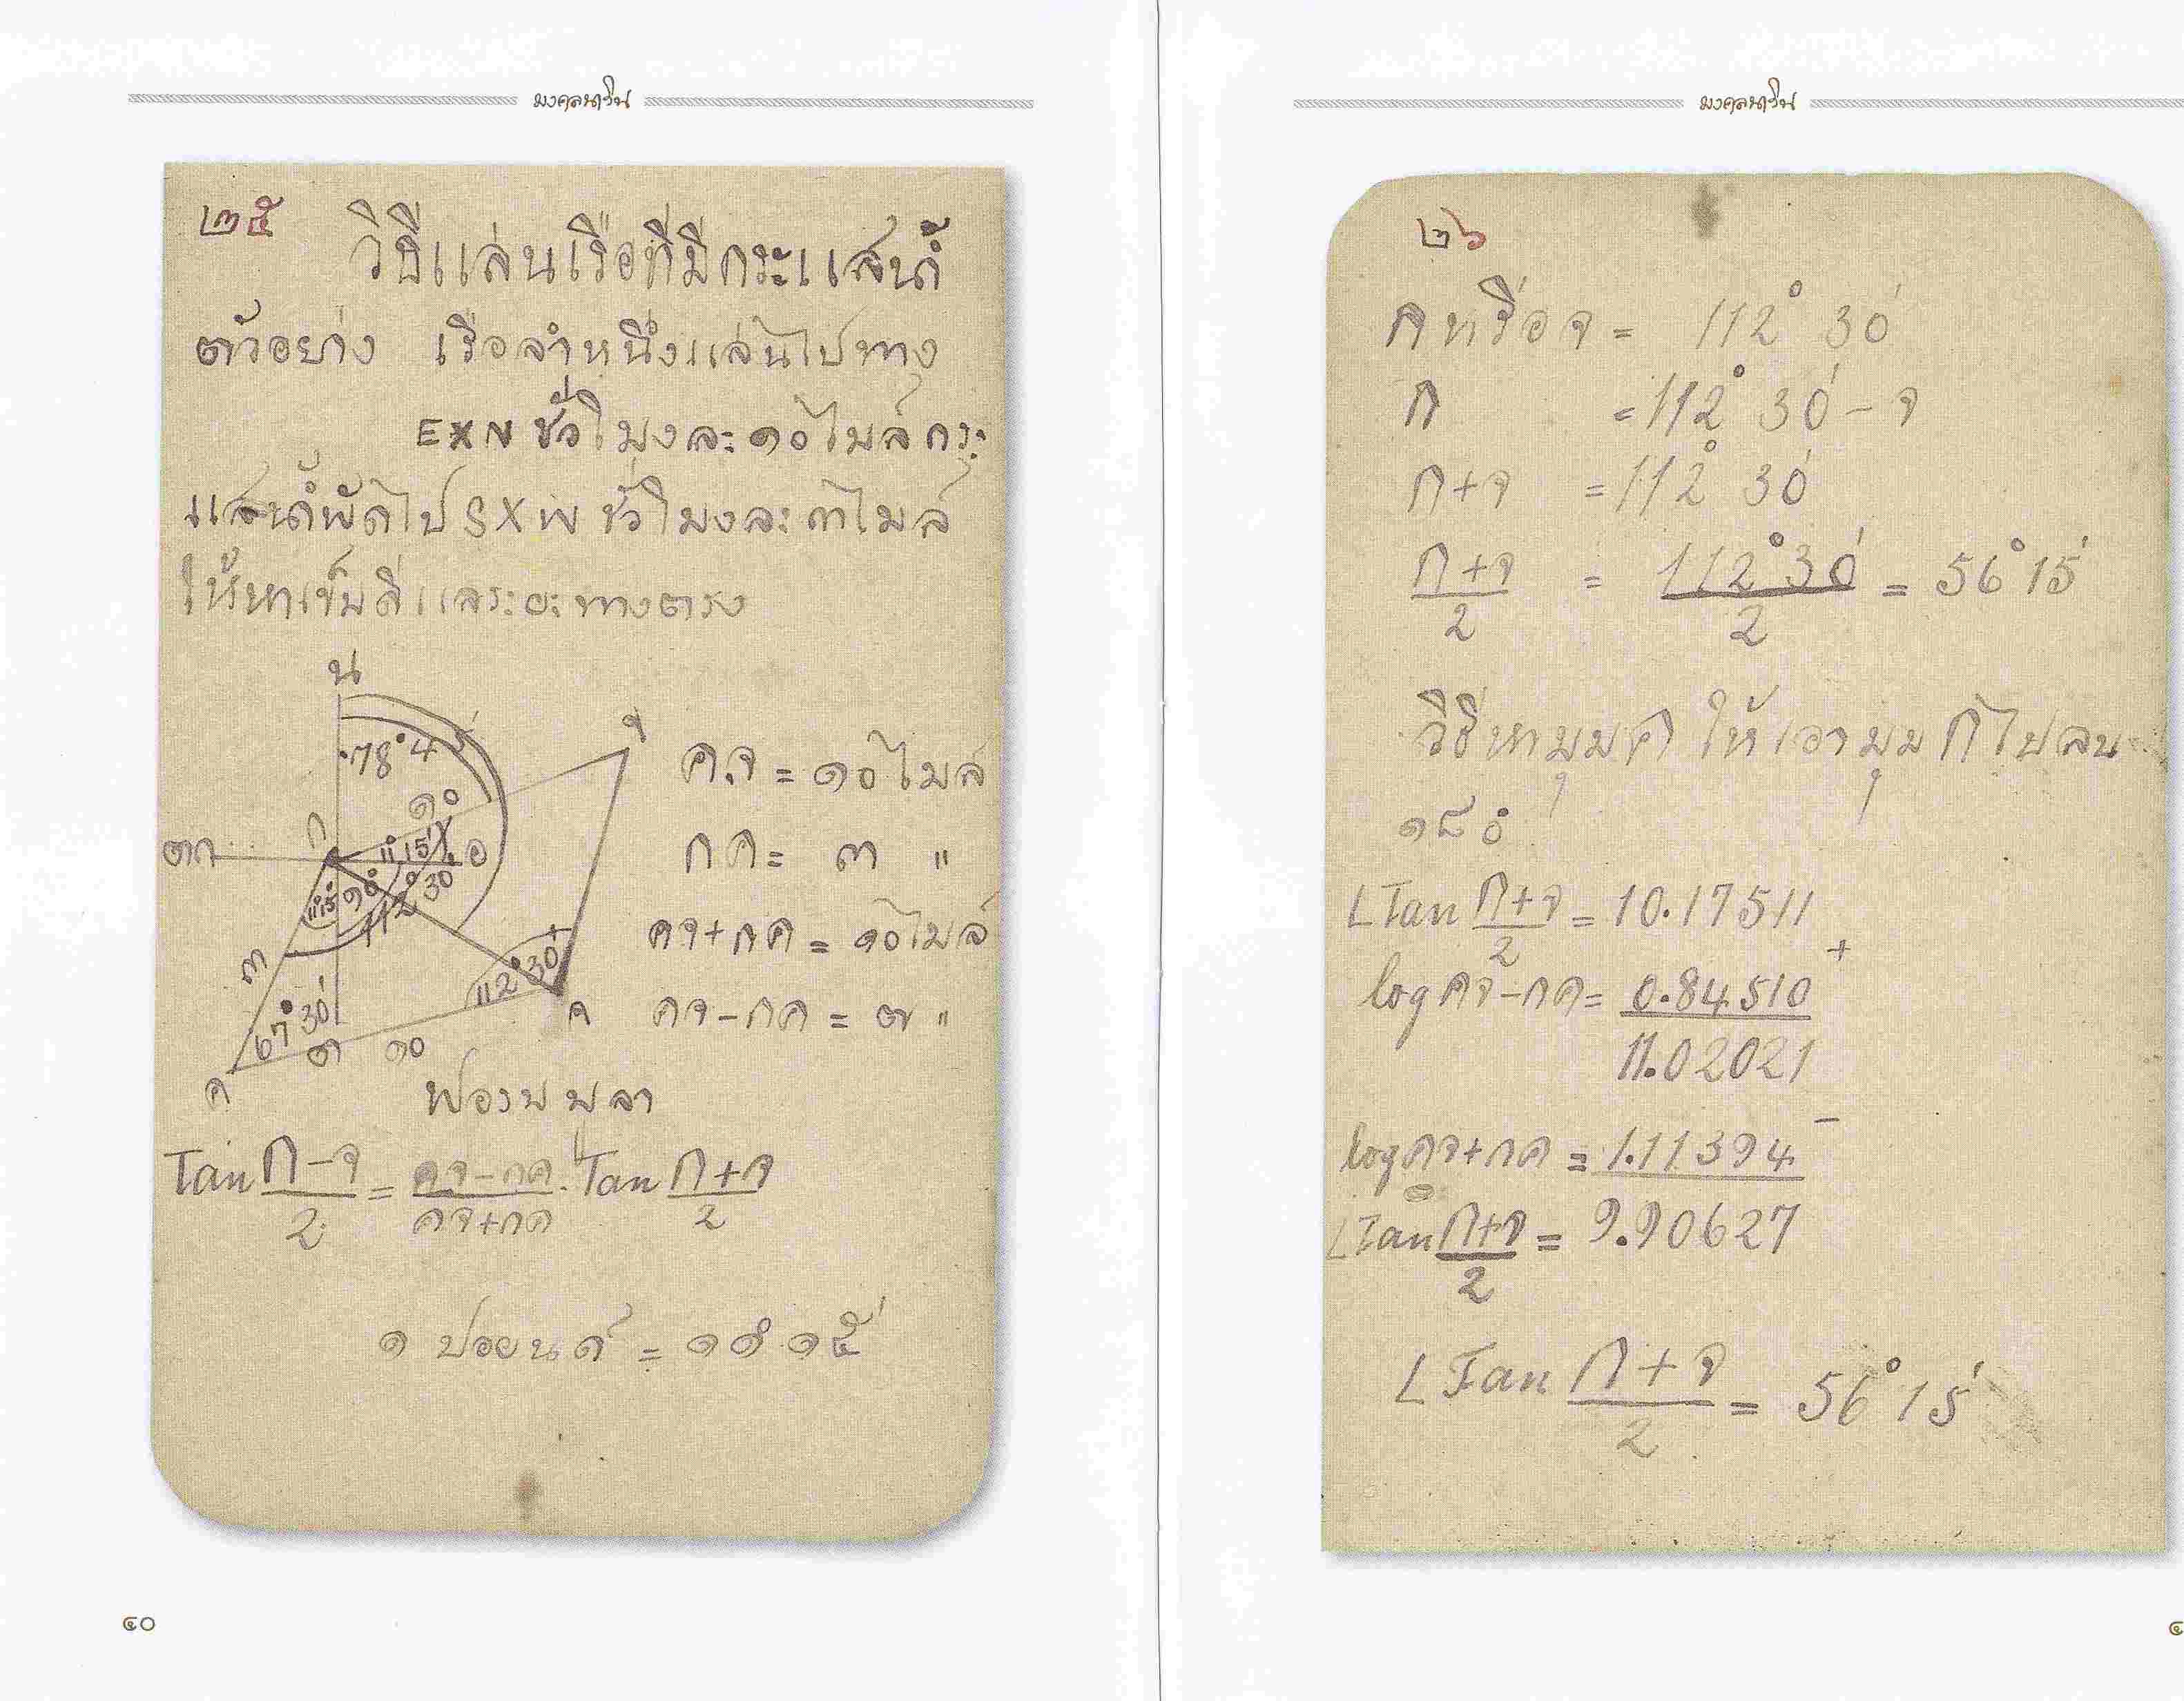 มงคลนาวิน
๒๕ วิธีแล่นเรือที่มีกระแสน้ำ
ตัวอย่าง เรือลำหนึ่งแล่นไปทาง
EXN ชั่วโมงละ ๑๐ ไมล์ กระ
แสน้ำพัดไป SXW ชั่วโมงละ ๓ ไมล์
ให้หาเข็มสี่แลระยะทางตรง
น
78° 45'
จ
ค.จ = ๑๐ ไมล์
๑๐
ก
ตก
11° 15'
อ
ก ค = ๓ "
11° 15'
๑๐
112° 30
คจ+กค = ๑๐ ไมล์
๓
112° 30'
67° 30'
ต
๑๐
ค
คจ-กค = ๗ "
ค
Tan ก-จ/2 = คจ-กค/คจ+กค . Tan ก+จ/2
๑ ปอยนต์ = ๑๑° ๑๕'
๔๐
มงคลนาวิน
๒๖
ก หรือ จ = 112° 30'
ก = 112° 30' - จ
ก+จ = 112° 30'
ก+จ/2 = 112° 30'/2 = 56° 15'
วิธีหามุม ค ให้เอามุม ก ไปลบ
๑๘๐
L Tan ก+จ/2 = 10.17511 +
log คจ-กค = 0.84510
11.02021
log คจ+กค = 1.11394 -
L Tan ก+จ/2 = 9.90627
L Tan ก+จ/2 = 56° 15'